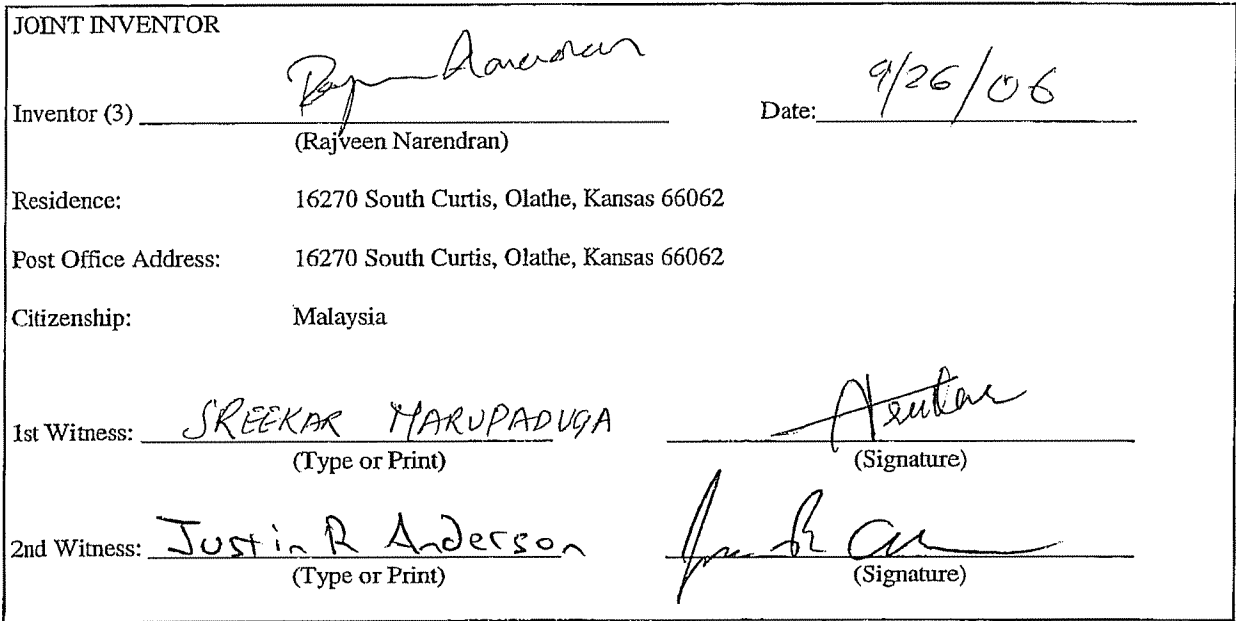 JOINT INVENTOR
Inventor (3) Date: 9/26/06
(Rajveen Narendran)
Residence: 16270 South Curtis, Olathe, Kansas 66062
Post Office Address: 16270 South Curtis, Olathe, Kansas 66062
Citizenship: Malaysia
1st Witness: SREEKAR MARUPADUGA
(Type or Print) (Signature)
2nd Witness: Justin R Anderson
(Type or Print) (Signature)